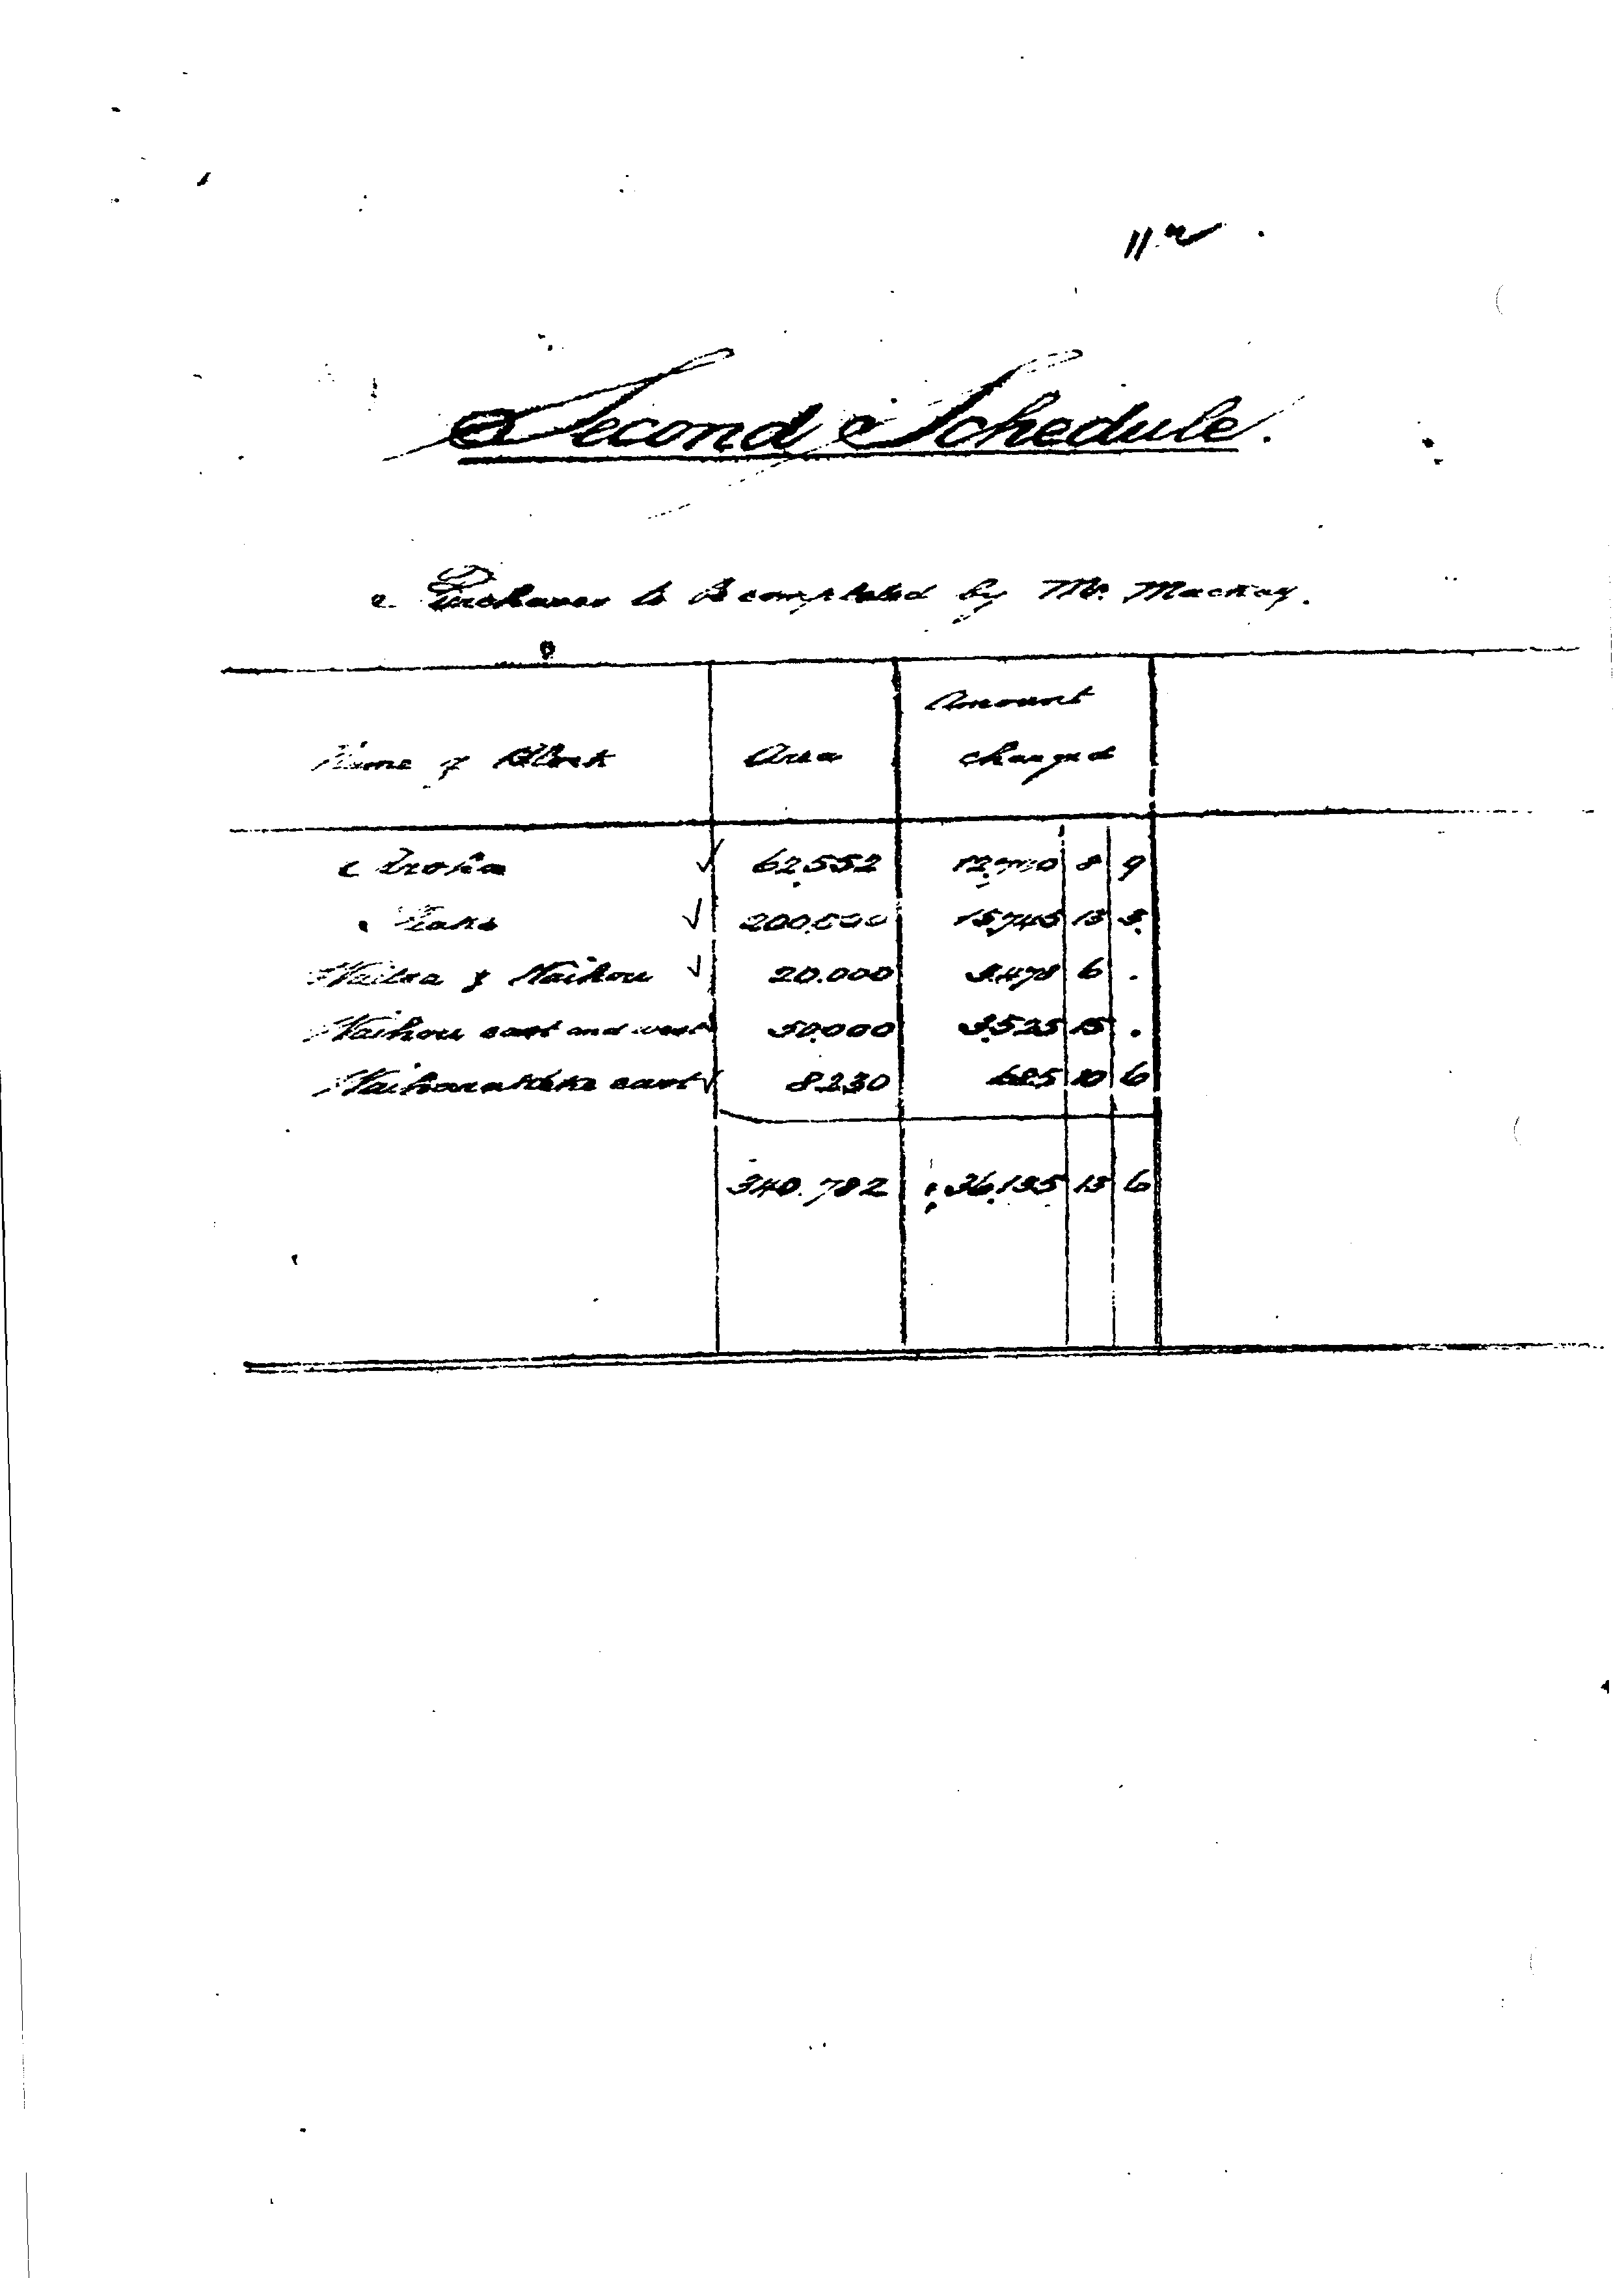 11.
Second Schedule.
Purchases to be completed by Mr. Mackay.
Amount
Name of Block Area charged
Aroha ✓ 62,552 12,700 8 9
Piako ✓ 200,000 15,745 13 3
Waitoa & Waihou ✓ 20.000 3,478 6 .
Waihou east and west 50,000 3,525 15 .
Waiharakeke east ✓ 8230 685 10 6
340.782 36,135 13 6